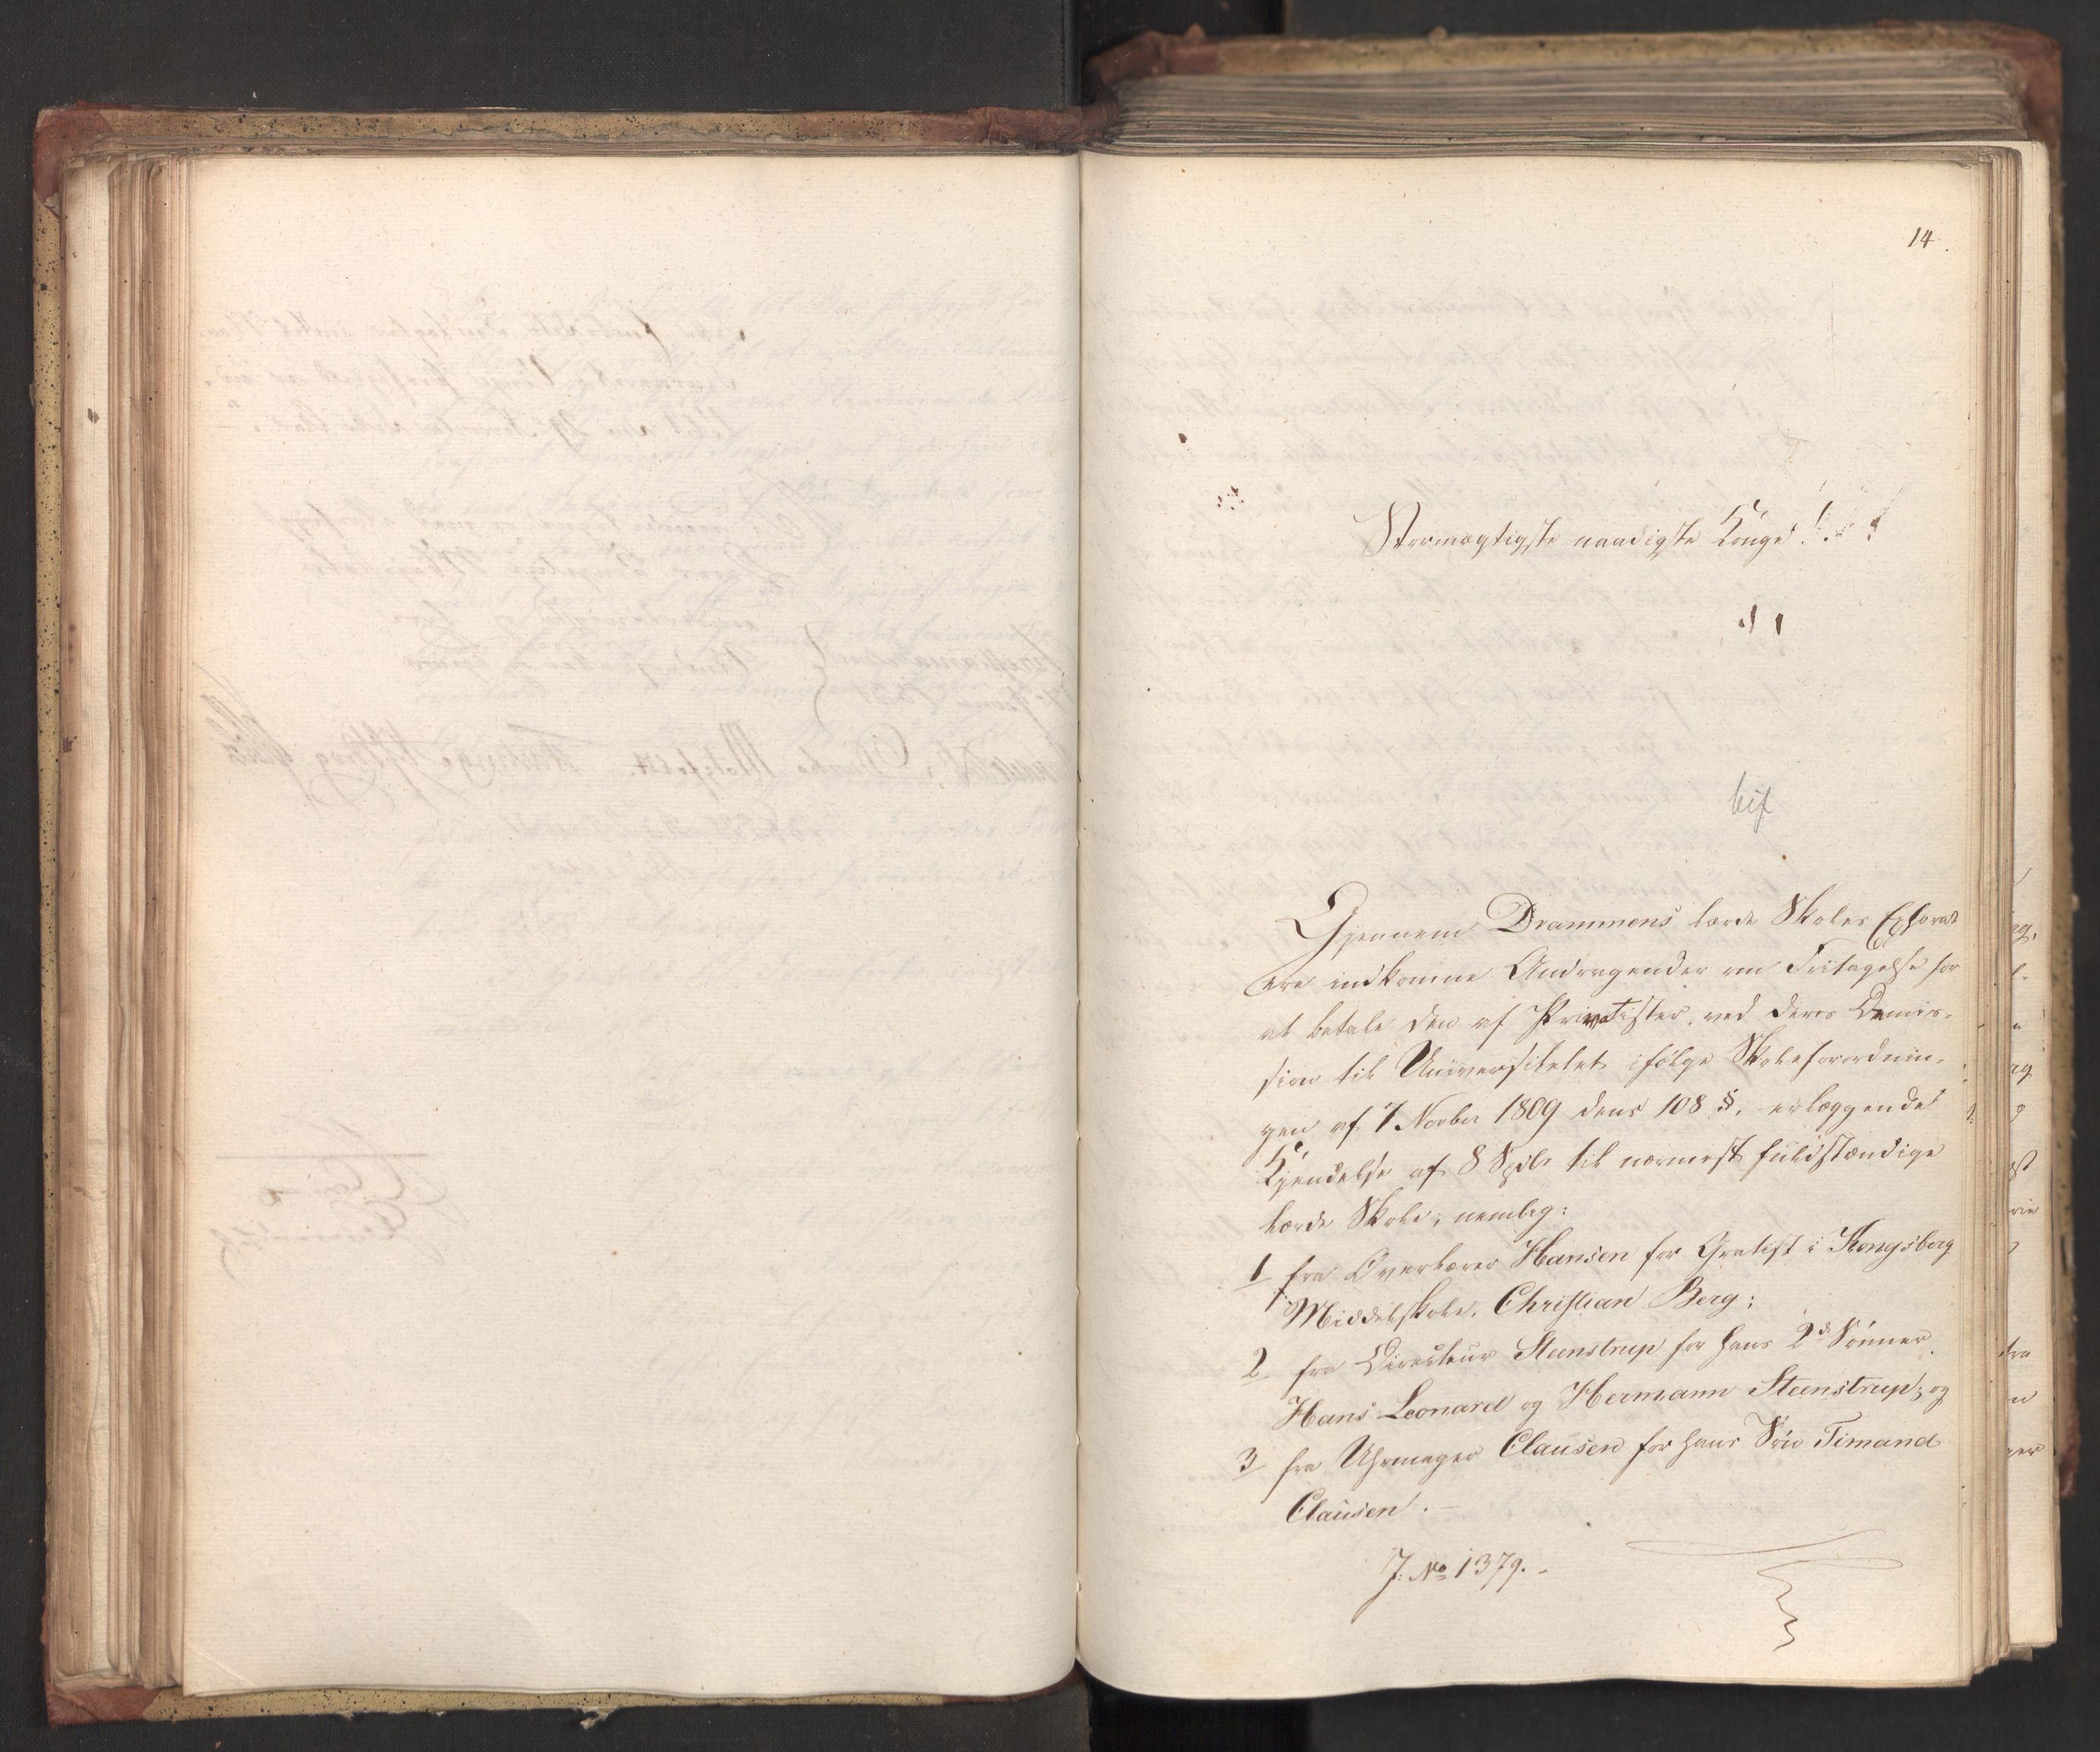 14.
Stormægtigste naadigste Konge!
bif
Gjennem Drammens lærde Skoles Ephorat
ere indkomne Andragender om Fritagelse for
at betale den af Privatister, ved deres Demis-
sion til Universitetet ifølge Skoleforordnin-
gen af 7 Novber 1809 dens 108 §, erlæggende
Kjendelse af 8 Spdlr til nærmest fuldstændige
lærde Skole; nemlig:
1 fra Overlærer Hansen for Gratist i Kongsberg
Middelskole, Christian Berg;
2 fra Directeur Steenstrup for hans 2de Sønner
Hans Leonard og Hermann Steenstrup; og
3 fra Uhrmager Clausen for hans Søn Timand
Clausen.-
J: No 1379.-